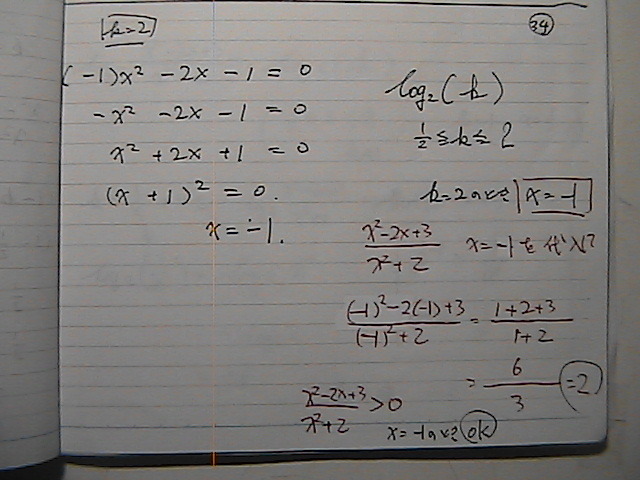 k=2
(-1)x² - 2x - 1 = 0
-x² - 2x - 1 = 0
x² + 2x + 1 = 0
(x + 1)² = 0.
x = -1.
34
log₂(k)
1/2 ≦ k ≦ 2
k=2のとき x=-1
(x²-2x+3)/(x²+2) x=-1を代入?
((-1)²-2(-1)+3)/((-1)²+2) = (1+2+3)/(1+2)
= 6/3 = 2
(x²-2x+3)/(x²+2) > 0
x=-1のとき OK